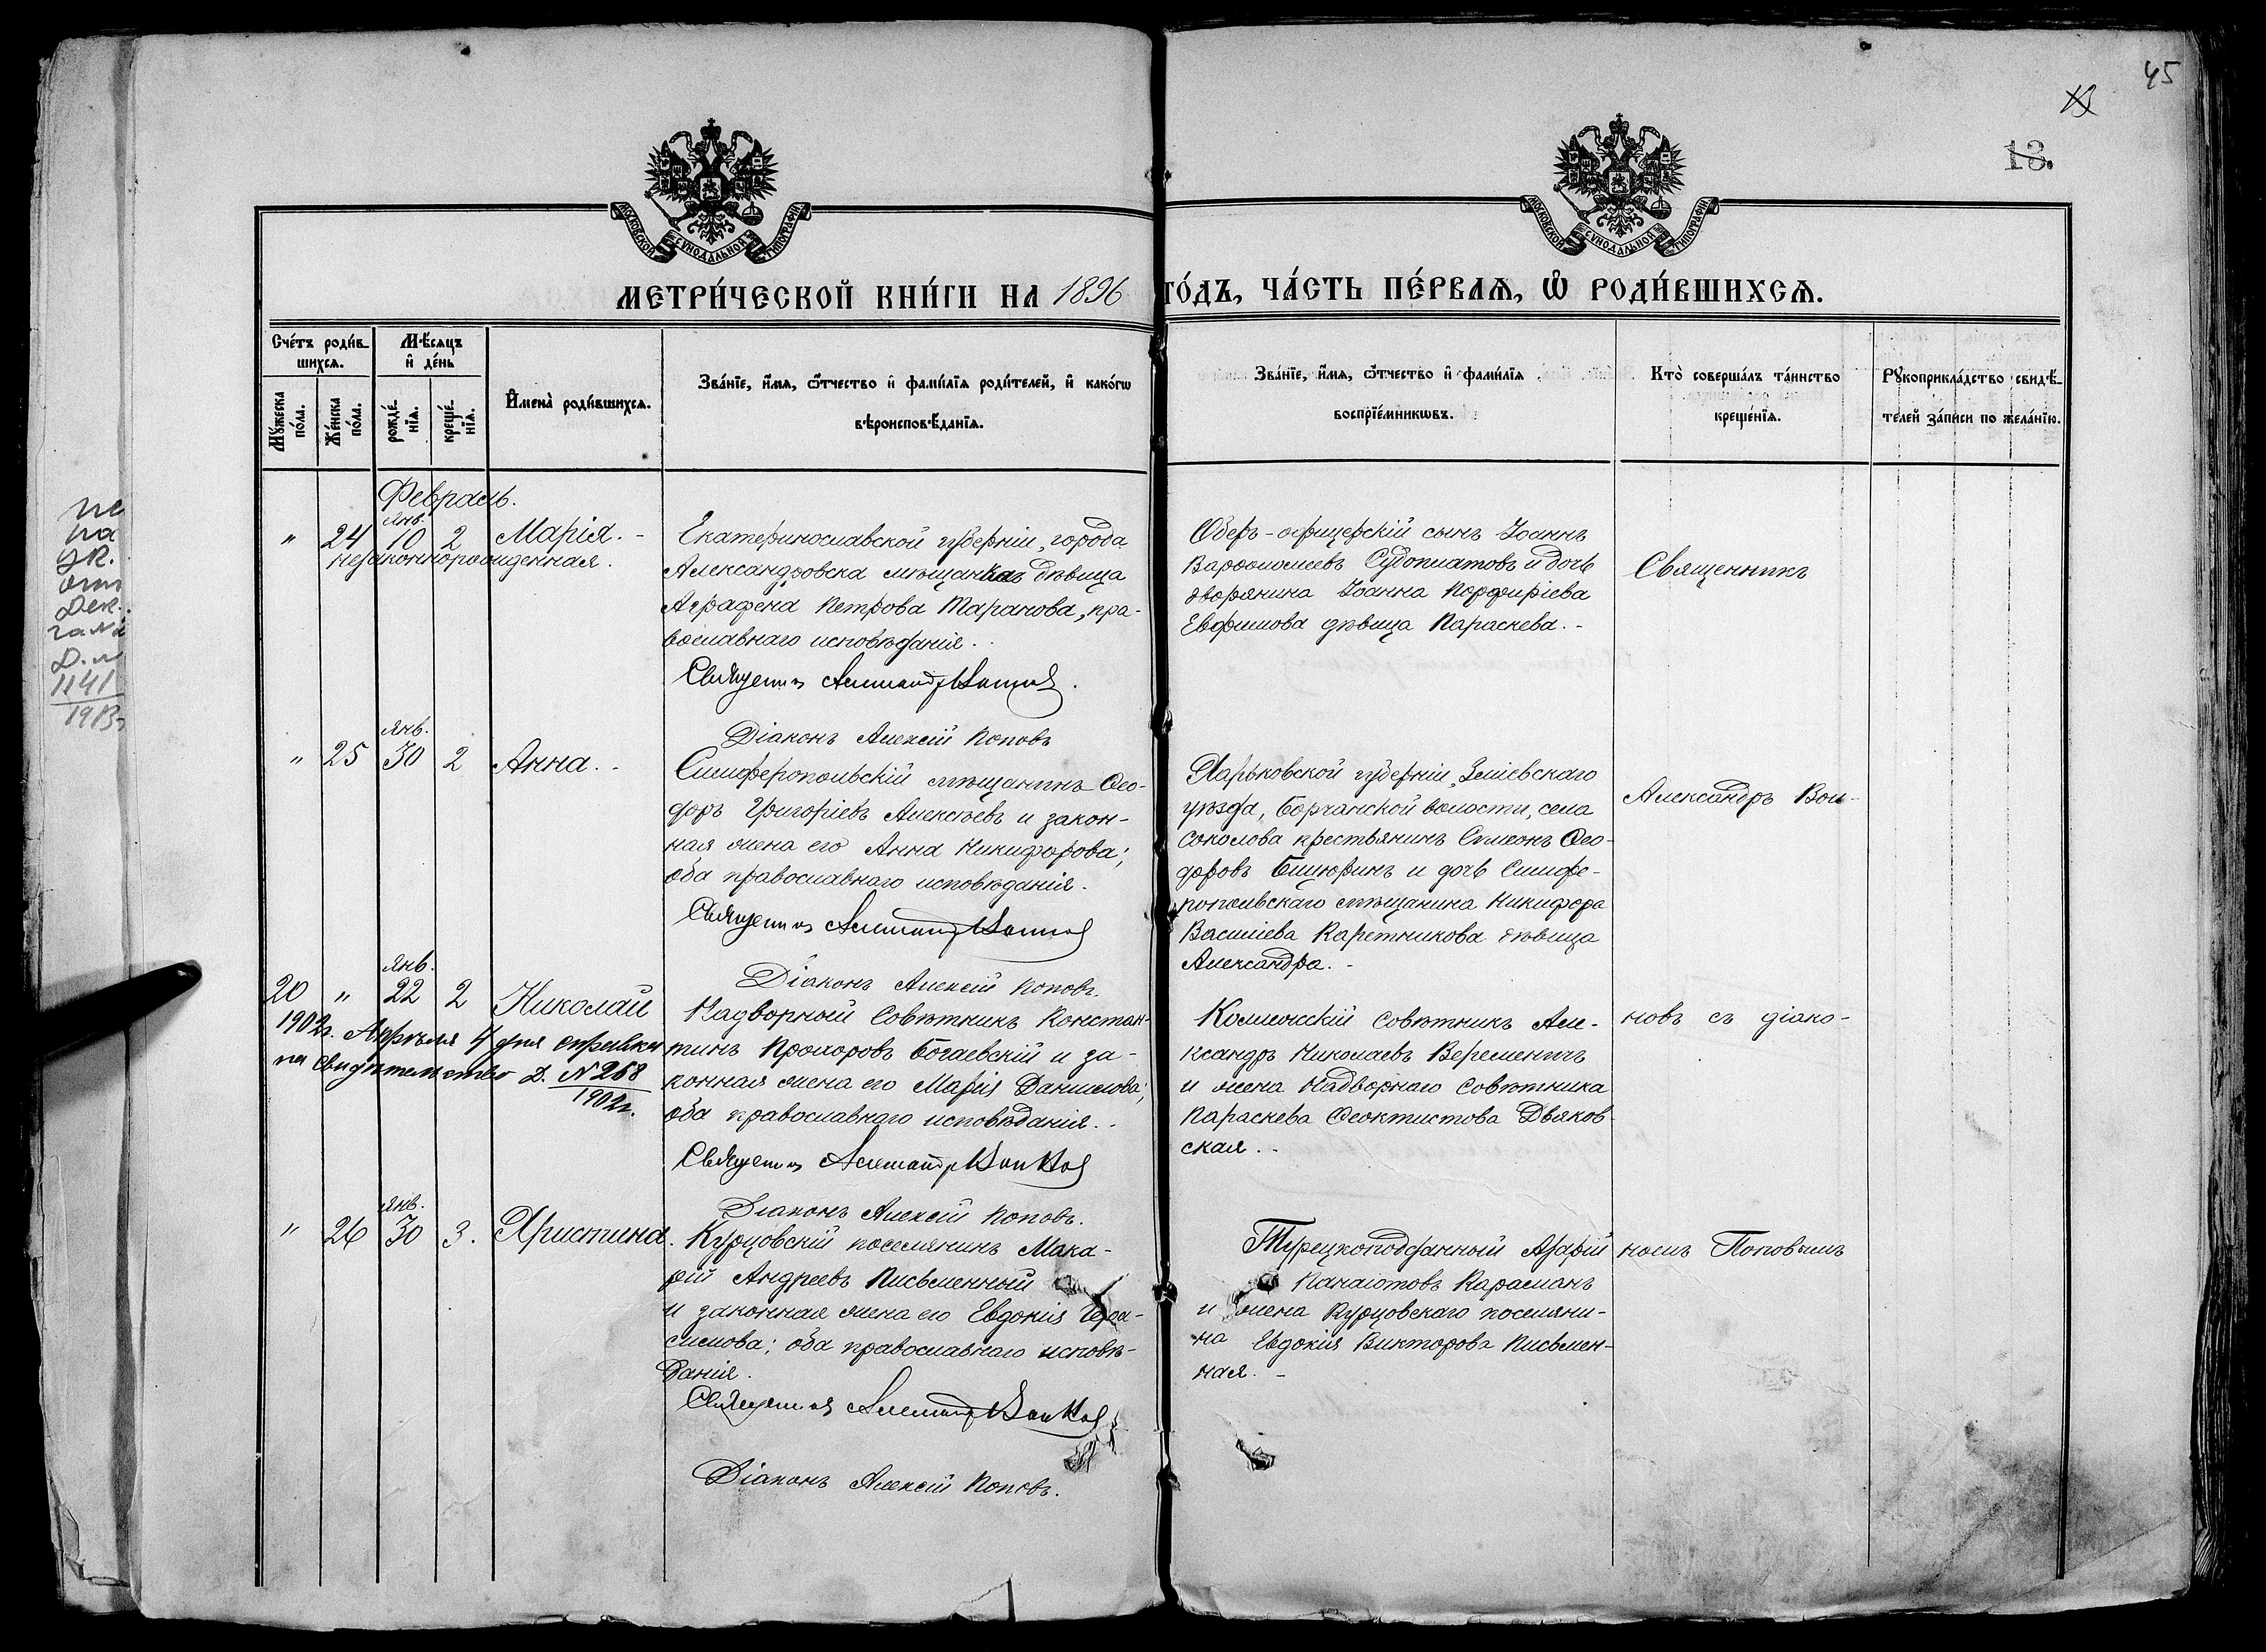 45
13.
МОСКОВСКОЙ СУНОДАЛЬНОЙ ТИПОГРАФІИ
МОСКОВСКОЙ СУНОДАЛЬНОЙ ТИПОГРАФІИ
МЕТРИ́ЧЕСКОЙ КНИ́ГИ НА 1896 ГО́ДЪ, ЧА́СТЬ ПЕ́РВАѦ, Ѡ РОДИ́ВШИХСѦ.
Сче́тъ роди́вшихсѧ.
Мꙋ́жеска по́ла.
Же́нска по́ла.
Мѣ́сяцъ и де́нь
рожде́нїѧ.
креще́нїѧ.
Имена̀ роди́вшихсѧ.
Зва́нїе, и́мѧ, ѻ́тчество и фами́лїѧ роди́телей, и како́гѡ
вѣроисповѣ́данїѧ.
Зва́нїе, и́мѧ, ѻ́тчество и фами́лїѧ
воспрїе́мникѡвъ.
Кто̀ соверша́лъ та́инство
креще́нїѧ.
Рꙋкоприкла́дство свидѣ́-
телей за́писи по жела́нїю.
Февраль.
" 24 Янв. 10 2 Марія. -
незаконнорожденная.
Екатеринославской губерніи, города
Александровска мѣщанка дѣвица
Аграфена Петрова Таранова, пра-
вославнаго исповѣданія.
Священникъ Александръ Войновъ
Діаконъ Алексій Поповъ
Оберъ-офицерскій сынъ Іоаннъ
Варѳоломеевъ Судоплатовъ и дочь
дворянина Іоанна Порфиріева
Евфимова дѣвица Параскева. -
Священникъ
" 25 Янв. 30 2 Анна. -
Симферопольскій мѣщанинъ Ѳео-
доръ Григоріевъ Алексѣевъ и закон-
ная жена его Анна Никифорова;
оба православнаго исповѣданія.
Священникъ Александръ Войновъ
Діаконъ Алексій Поповъ.
Харьковской губерніи, Зміевскаго
уѣзда, Борчанской волости, села
Соколова крестьянинъ Симеонъ Ѳео-
доровъ Бицюринъ и дочь Симфе-
ропольскаго мѣщанина Никифора
Василіева Каретникова дѣвица
Александра. -
Александръ Вой-
20 " Янв. 22 2 Николай
1902г. Апрѣля 4 дня справки
на свидѣтельство Д. № 268
1902г.
Надворный Совѣтникъ Констан-
тинъ Прохоровъ Богаевскій и за-
конная жена его Марія Данилова;
оба православнаго исповѣданія. -
Священникъ Александръ Войновъ
Діаконъ Алексій Поповъ.
Коллежскій Совѣтникъ Але-
ксандръ Николаевъ Веременичъ
и жена Надворнаго Совѣтника
Параскева Ѳеоктистова Дьяков-
ская. -
новъ съ діако-
" 26 Янв. 30 3. Христина.
Курцовскій поселянинъ Мака-
рій Андреевъ Письменный
и законная жена его Евдокія Гера-
симова; оба православнаго исповѣ-
данія.
Священникъ Александръ Войновъ
Діаконъ Алексій Поповъ.
Турецкоподданный
Панаіотовъ Караманъ
и жена Курцовскаго поселяни-
на Евдокія Викторова Письмен-
ная. -
номъ Поповымъ
1141